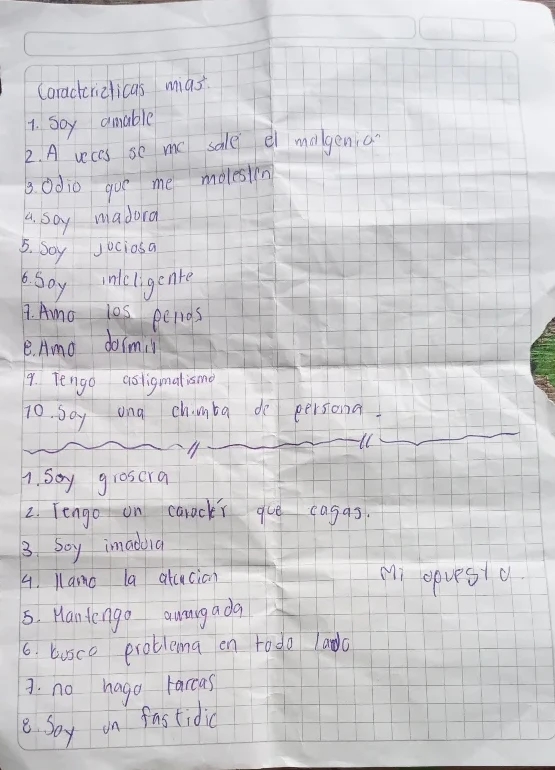 Caracterizticas mias.
1. Soy amable
2. A veces se me sale el malgenio
3. Odio que me molesten
4. Soy madura
5. Soy juciosa
6. Soy inteligente
7. Amo los perros
8. Amo dormir
9. Tengo astigmatismo
10. Soy una chimba de persona.
1. Soy grosera
2. Tengo un carácter que cagas.
3. Soy imadura
4. Llamo la atención
Mi opuesto.
5. Mantengo amargada
6. busco problema en todo lado
7. no hago tareas
8. Soy un fastidio